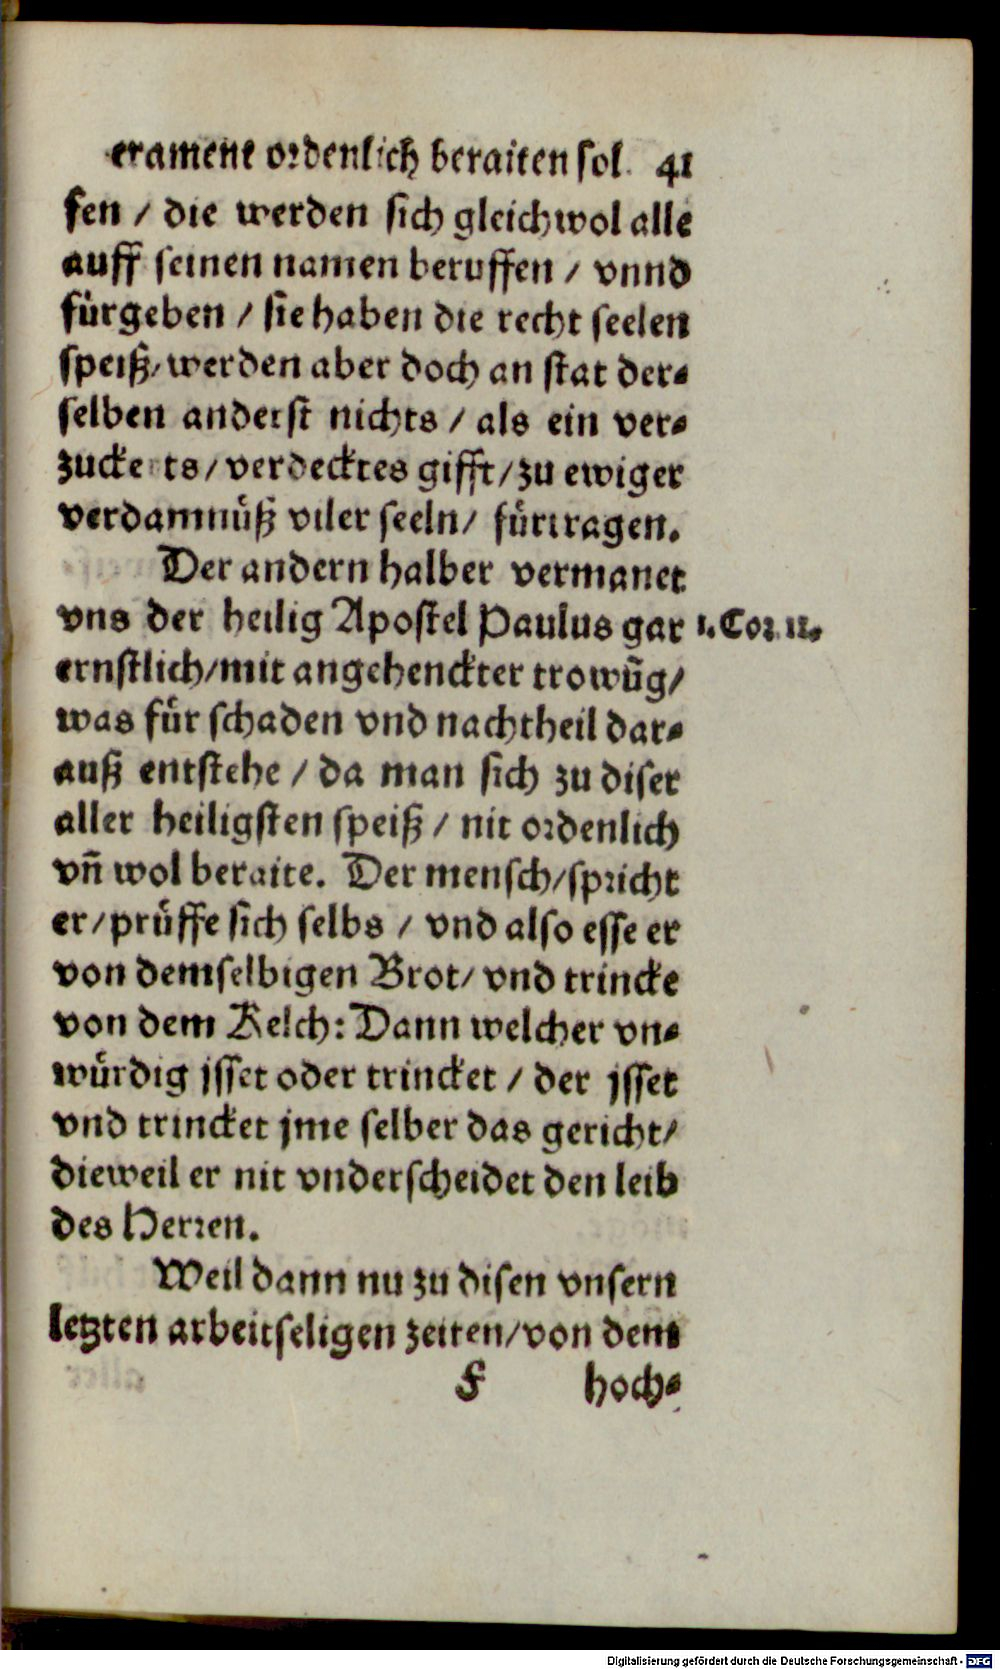 crament ordenlich beraiten sol. 41
sen / die werden sich gleichwol alle
auff seinen namen beruffen / vnnd
fürgeben / sie haben die recht seelen
speiß / werden aber doch an stat der⸗
selben anderst nichts / als ein ver⸗
zuckerts / verdecktes gifft / zu ewiger
verdamnüß viler seeln / fürtragen.
Der andern halber vermanet
vns der heilig Apostel Paulus gar 1. Cor. 11.
ernstlich / mit angehenckter trowũg /
was für schaden vnd nachtheil dar⸗
auß entstehe / da man sich zu diser
aller heiligsten speiß / nit ordenlich
vñ wol beraite. Der mensch / spricht
er / prüffe sich selbs / vnd also esse er
von demselbigen Brot / vnd trincke
von dem Kelch: Dann welcher vn⸗
würdig jsset oder trincket / der jsset
vnd trincket jme selber das gericht /
dieweil er nit vnderscheidet den leib
des Herren.
Weil dann nu zu disen vnsern
letzten arbeitseligen zeiten / von dem
F hoch⸗
Digitalisierung gefördert durch die Deutsche Forschungsgemeinschaft - DFG